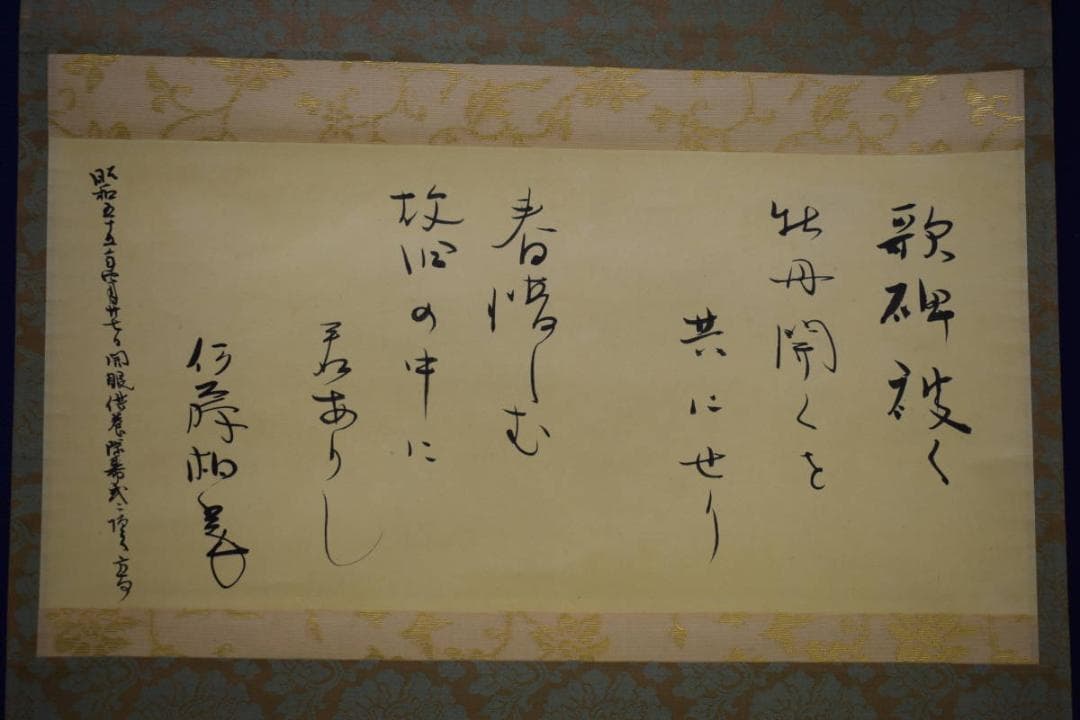 歌碑被く
牡丹開くを
共にせり
春惜しむ
故旧の中に
君ありし
伊藤柏翠
昭和五十五年四月廿七日開眼供養除幕式ニ頂く